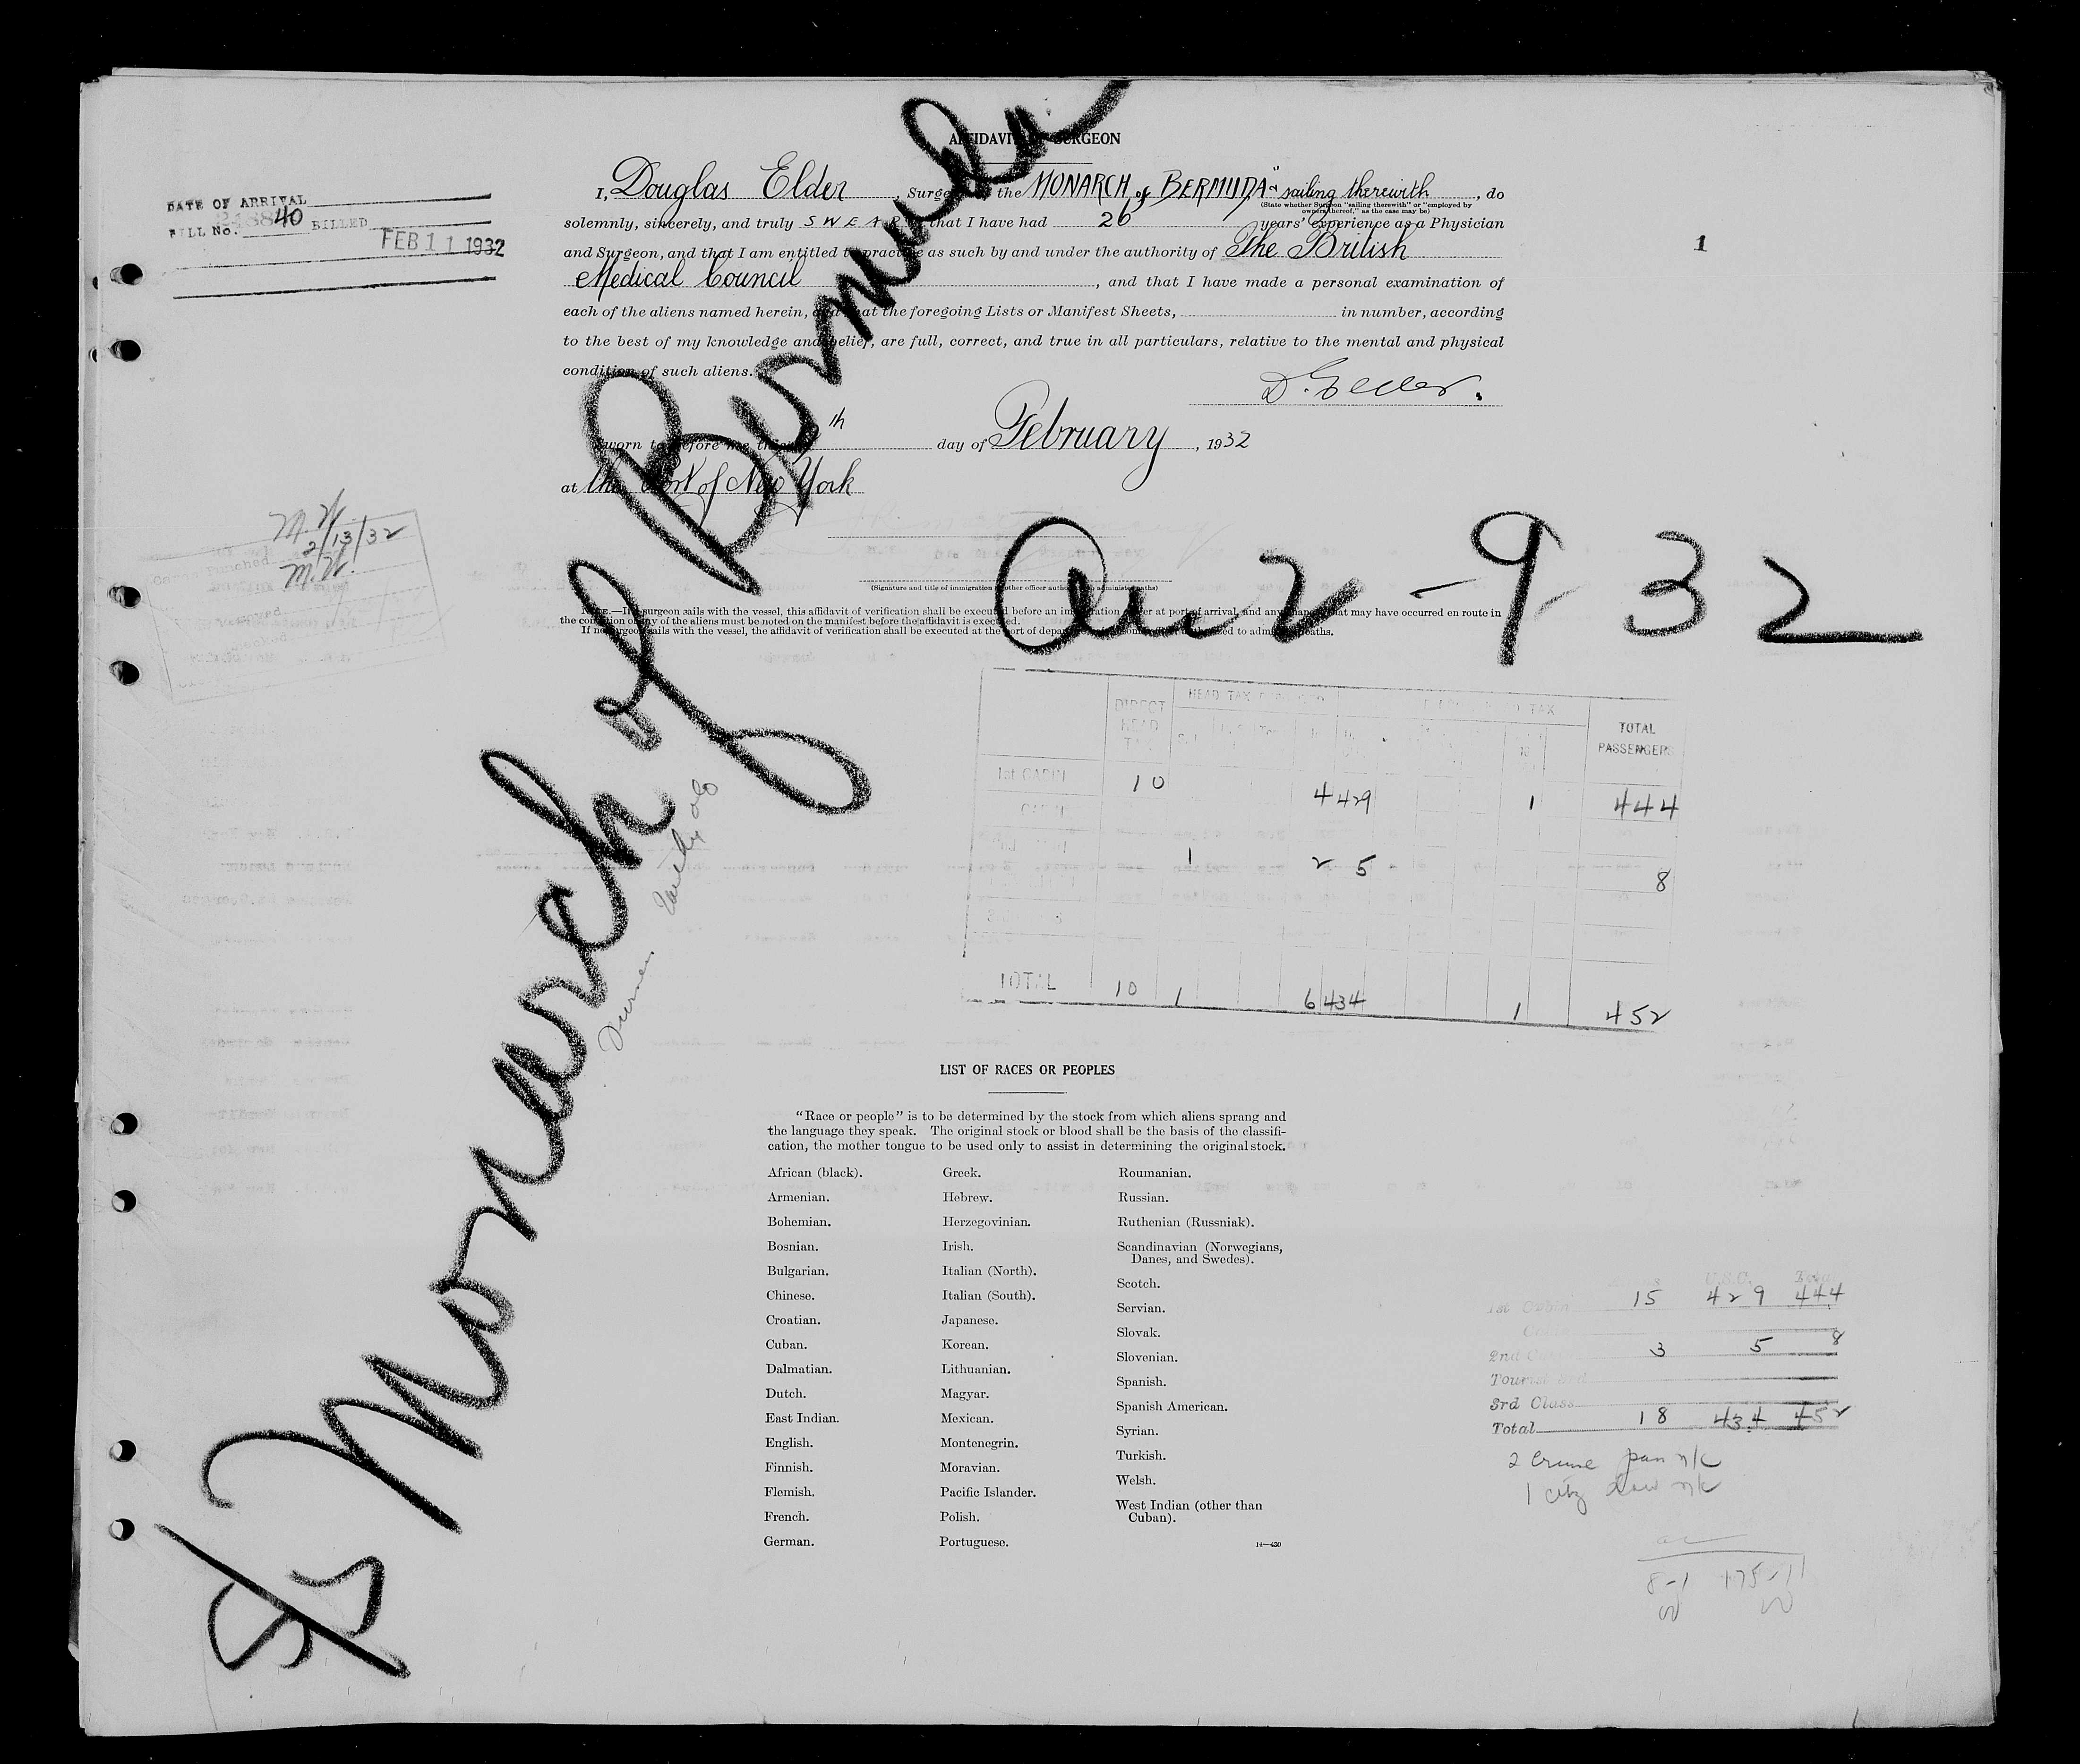 AFFIDAVIT OF SURGEON
I, Douglas Elder, Surgeon of the MONARCH of BERMUDA" sailing therewith, do
(State whether Surgeon "sailing therewith" or "employed by
owners thereof," as the case may be)
solemnly, sincerely, and truly SWEAR that I have had 26 years' experience as a Physician
and Surgeon, and that I am entitled to practice as such by and under the authority of The British
Medical Council, and that I have made a personal examination of
each of the aliens named herein, and that the foregoing Lists or Manifest Sheets, in number, according
to the best of my knowledge and belief, are full, correct, and true in all particulars, relative to the mental and physical
condition of such aliens.
D. Elder.
Sworn to before me this th day of February, 1932
at the Port of New York
DATE OF ARRIVAL
BILL No. 40 BILLED
FEB 11 1932
1
M.N.
2/13/32
M.N.
(Signature and title of immigration or other officer authorized to administer oaths)
NOTE.—If a surgeon sails with the vessel, this affidavit of verification shall be executed before an immigration officer at port of arrival, and any changes that may have occurred en route in
the condition of any of the aliens must be noted on the manifest before the affidavit is executed.
If no surgeon sails with the vessel, the affidavit of verification shall be executed at the port of departure to administer oaths.
S/S Monarch of Bermuda
Arr 2-9-32
DIRECT HEAD TAX
TOTAL PASSENGERS
1st CABIN 10 4 429 1 444
1 2 5 8
TOTAL 10 1 6 434 1 452
LIST OF RACES OR PEOPLES
"Race or people" is to be determined by the stock from which aliens sprang and
the language they speak. The original stock or blood shall be the basis of the classifi-
cation, the mother tongue to be used only to assist in determining the original stock.
African (black).
Armenian.
Bohemian.
Bosnian.
Bulgarian.
Chinese.
Croatian.
Cuban.
Dalmatian.
Dutch.
East Indian.
English.
Finnish.
Flemish.
French.
German.
Greek.
Hebrew.
Herzegovinian.
Irish.
Italian (North).
Italian (South).
Japanese.
Korean.
Lithuanian.
Magyar.
Mexican.
Montenegrin.
Moravian.
Pacific Islander.
Polish.
Portuguese.
Roumanian.
Russian.
Ruthenian (Russniak).
Scandinavian (Norwegians,
Danes, and Swedes).
Scotch.
Servian.
Slovak.
Slovenian.
Spanish.
Spanish American.
Syrian.
Turkish.
Welsh.
West Indian (other than
Cuban).
14—430
U.S.C. Total
1st Cabin 15 429 444
2nd Cabin 3 5 8
Tourist 3rd
3rd Class
Total 18 434 452